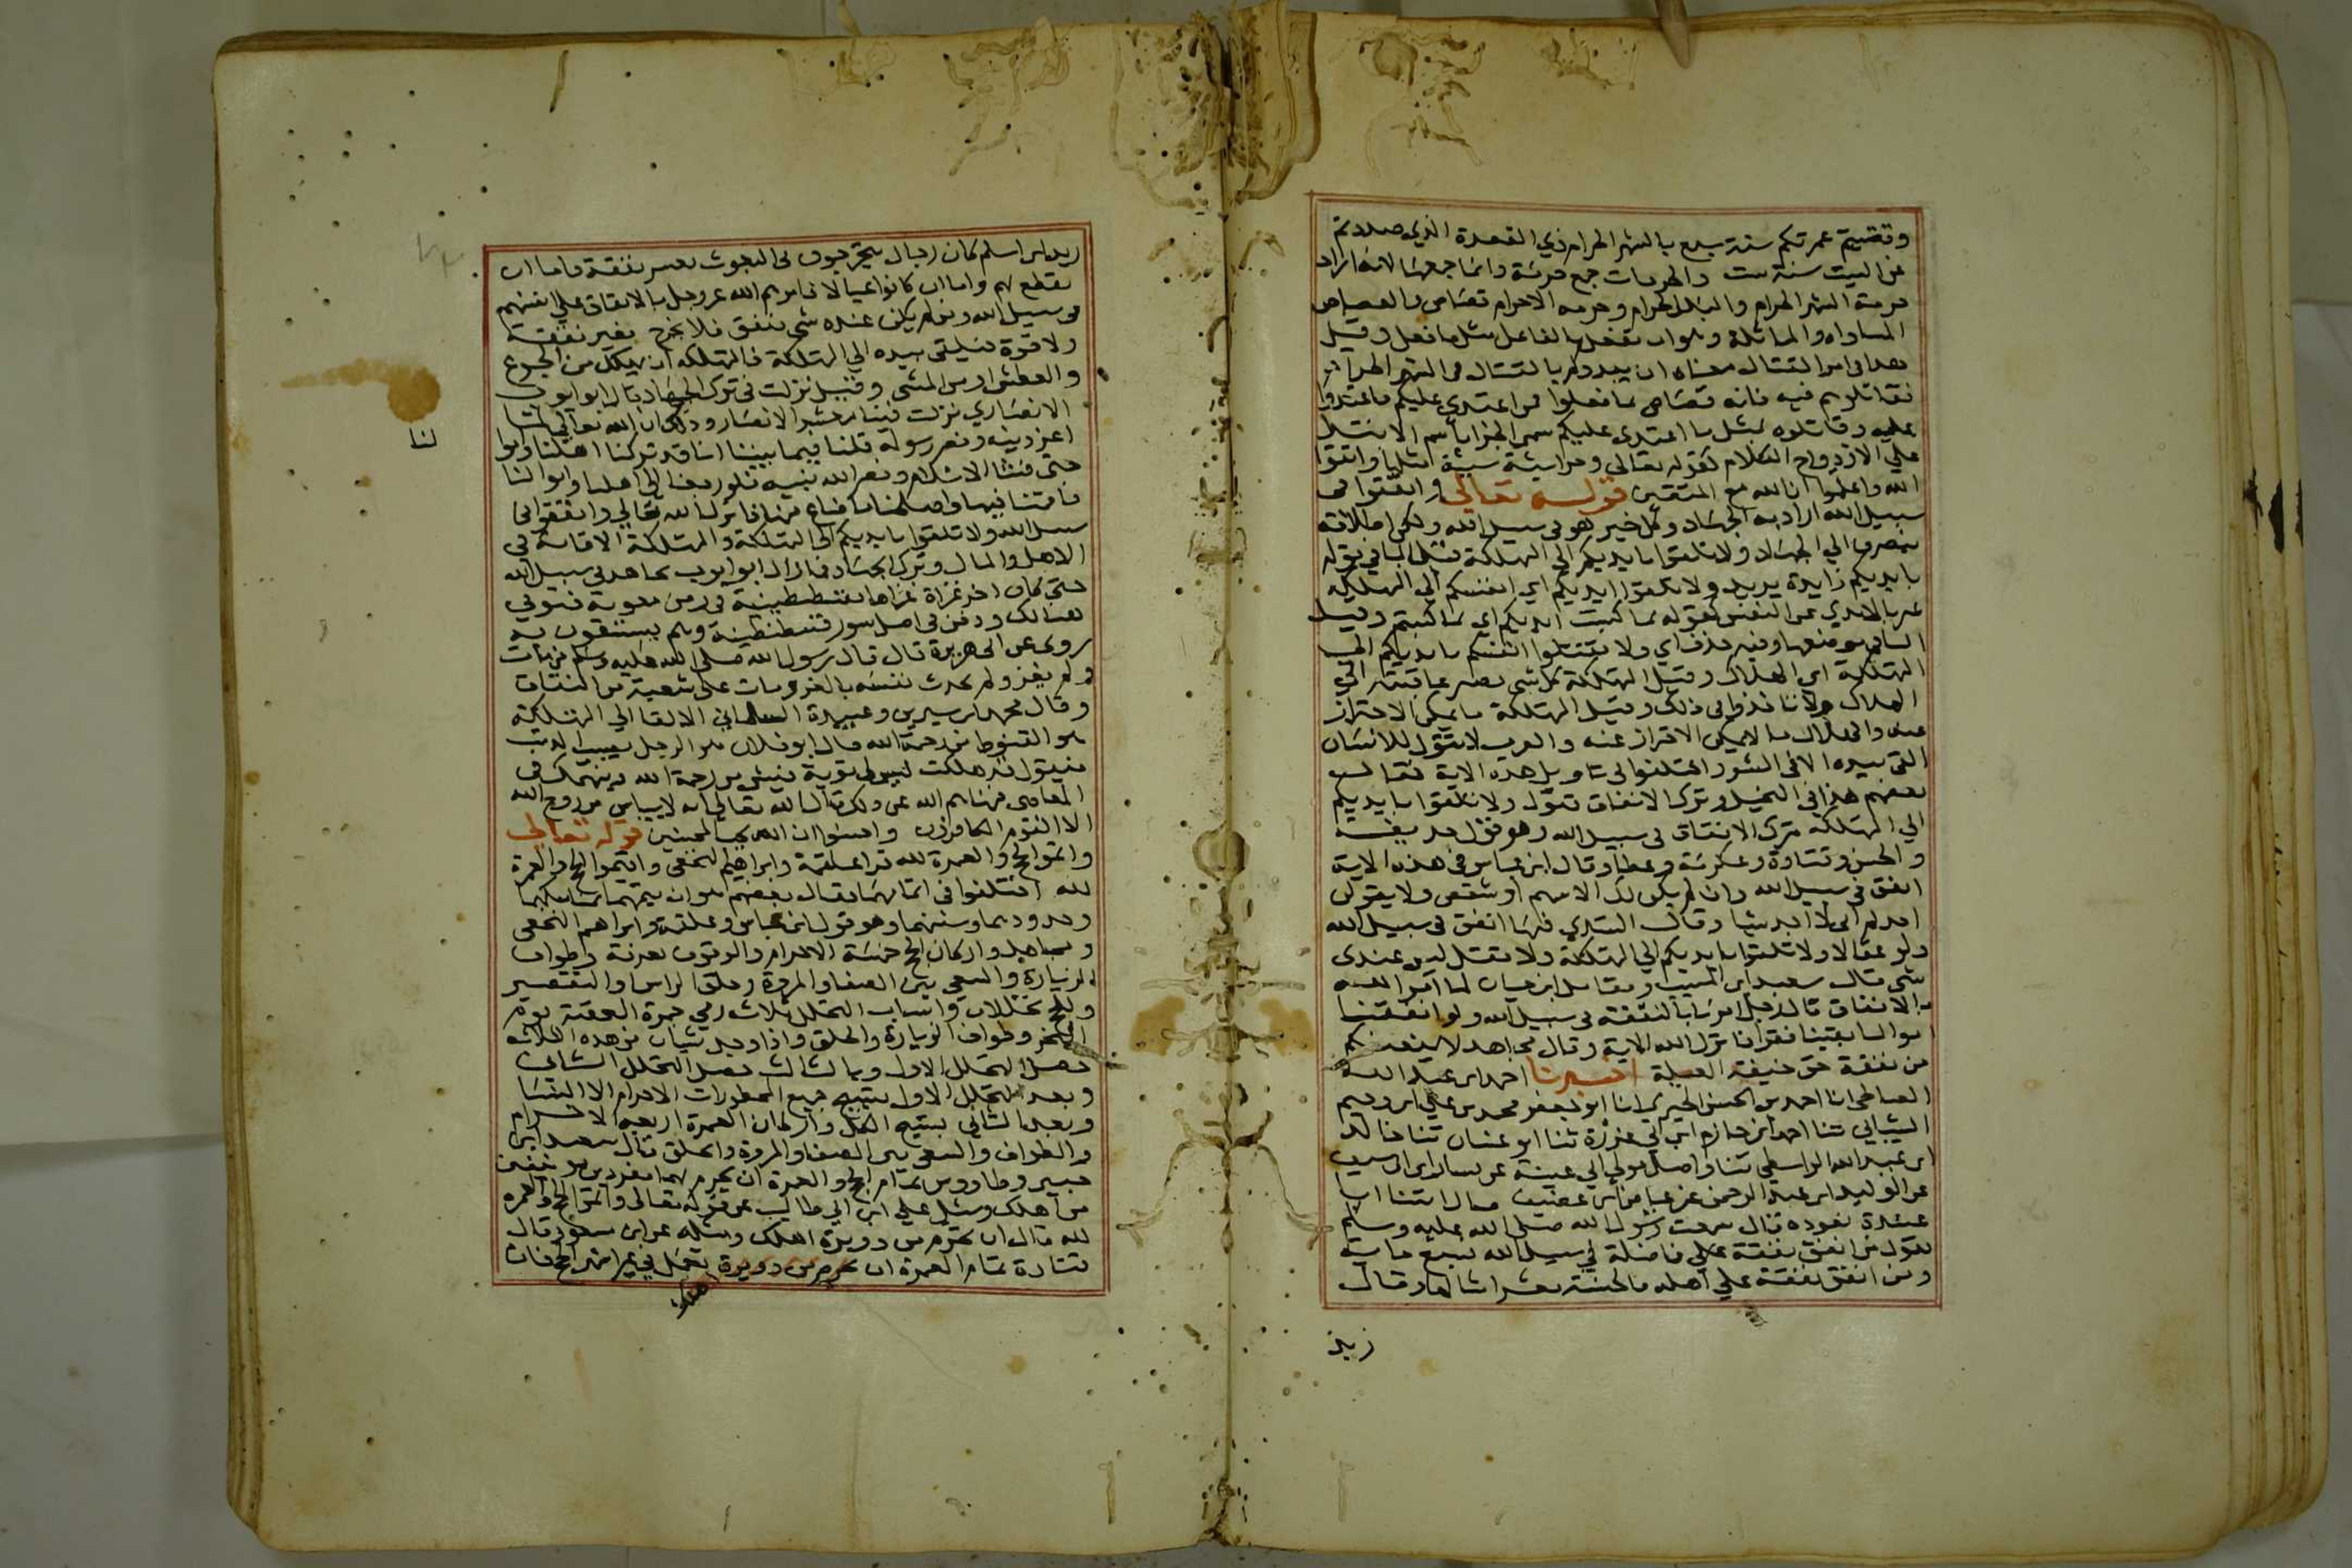 وقضيتم عمرتكم سنة سبع بالشهر الحرام ذي القعدة الذي صددتم
عن البيت سنة ست والحرمات جمع حرمة وانما جمعها لانه اراد
حرمة الشهر الحرام والبلد الحرام وحرمه الاحرام قصاص والقصاص
المساواه والمماثلة وهو ان يفعل بالفاعل مثل ما فعل وقيل
هدا في امر القتال معناه ان بدوكم بالقتال في الشهر الحرام
فقاتلوهم فيه فانه قصاص بما فعلوا فمن اعتدي عليكم فاعتدوا
عليه وقاتلوه بمثل ما اعتدي عليكم سمي الجزا باسم الابتدا
علي الازدواج الكلام كقوله تعالي وجزا سيئة سيئة مثلها واتقوا
الله واعلموا ان الله مع المتقين قوله تعالي وانفقوا في
سبيل الله اراد به الجهاد وكل خير هو في سبيل الله ولكن اطلاقه
ينصرف الي الجهاد ولا تلقوا بايديكم الي التهلكة قيل البا في قوله
بايديكم زايدة يريد ولا تلقوا ايديكم اي انفسكم الي التهلكه
عبر بالايدي عن النفس كقوله بما كسبت ايديكم اي بما كسبتم وقيل
البا في موضعها وفيه حذف اي ولا تلقوا انفسكم بايديكم الي
التهلكة اي الهلاك وقيل التهلكة كل شي يصير عاقبته الي
الهلاك ولا تاخذوا في ذلك وقيل التهلكة ما يمكن الاحتراز
عنه والهلاك ما لا يمكن الاحتراز عنه والعرب لا تقول للانسان
القي بيده الا في الشر واختلفوا في تاويل هده الاية فقال
بعضهم هذا في البخل وترك الانفاق يقول ولا تلقوا بايديكم
الي التهلكة بترك الانفاق في سبيل الله وهو قول حديفة
والحسن وقتادة وعكرمة وعطا وقال ابن عباس في هذه الاية
انفق في سبيل الله وان لم يكن لك الا سهم او مشقص ولا يقولن
احدكم اني لا اجد شيا وقال السدي فيها انفق في سبيل الله
ولو عقالا ولا تلقوا بايديكم الي التهلكة ولا تقل ليس عندي
شي قال سعيد ابن المسيب ومقاتل ابن حيان لما امر الله
بالانفاق قال رجل امرنا بالنفقة في سبيل الله ولو انفقنا
اموالنا بقينا فقرا فانزل الله الاية وقال مجاهد لا يمنعنكم
من نفقة حق خيفة العيلة اخبرنا احمد ابن عبد الله
الصالحي انا احمد بن الحسن الحيري انا ابو جعفر محمد بن علي ابن دحيم
الشيباني ثنا احمد ابن حازم ابن ابي عزرة ثنا ابو غسان ثنا خالد
ابن عبد الله الواسطي ثنا واصل مولي ابي عيينة عن بشار ابن ابي سيف
عن الوليد ابن عبد الرحمن عن عياض ابن غضيف قال اتينا ابا
عبيدة نعوده قال سمعت رسول الله صلي الله عليه وسلم
يقول من انفق نفقة علي فاضلة في سبيل الله فبسبع ماية
ومن انفق نفقة علي اهله فالحسنة بعشر امثالها وقال
زيد
زيد ابن اسلم كان رجال يخرجون في البعوث بغير نفقة فاما ان
يقطع بهم واما ان كانوا عيالا فامرهم الله عز وجل بالانفاق علي انفسهم
في سبيل الله ومن لم يكن عنده شي ينفق فلا يخرج بغير نفقة
ولا قوة فيلقي بيده الي التهلكة فالتهلكه ان يهلك من الجوع
والعطش او من المشي وقيل نزلت في ترك الجهاد قال ابو ايوب
الانصاري نزلت فينا معشر الانصار وذلك ان الله تعالي لما
اعز دينه ونصر رسوله قلنا فيما بيننا انا قد تركنا اهلنا واموا
لنا
حتي فشا الاسلام ونصر الله نبيه فلو رجعنا الي اهلنا واموالنا
فاقمنا فيها واصلحنا ما ضاع منها فانزل الله تعالي وانفقوا في
سبيل الله ولا تلقوا بايديكم الي التهلكة والتهلكة الاقامة في
الاهل والمال وترك الجهاد فما زال ابو ايوب يجاهد في سبيل الله
حتي كان اخر غزاة غزاها بقسطنطينية في زمن معوية فتوفي
هنالك ودفن في اصل سور قسطنطينية وهم يستسقون به
روي عن ابي هريرة قال قال رسول الله صلي الله عليه وسلم من مات
ولم يغز ولم يحدث نفسه بالغزو مات علي شعبة من النفاق
وقال محمد ابن سيرين وعبيدة السلماني الالقا الي التهلكة
هو القنوط من رحمة الله قال ابو قلابة هو الرجل يصيب الذنب
فيقول قد هلكت ليس لي توبة فييئس من رحمة الله وينهمك في
المعاصي فنهاهم الله عن ذلك قال الله تعالي انه لا ييأس من روح الله
الا القوم الكافرون واحسنوا ان الله يحب المحسنين قوله تعالي
واتموا الحج والعمرة لله قرا علقمة وابراهيم النخعي واقيموا الحج والعمرة
لله اختلفوا في اتمامهما فقال بعضهم هو ان يتمهما بمناسكهما
وحدودهما وسننهما وهو قول ابن عباس وعلقمة وابراهيم النخعي
ومجاهد واركان الحج خمسة الاحرام والوقوف بعرفة وطواف
الزيارة والسعي بين الصفا والمروة وحلق الراس والتقصير
وللحج تحللان واسباب التحلل ثلاث رمي جمرة العقبة يوم
النحر وطواف الزيارة والحلق واذا وجد شيان من هده الثلاثه
حصل التحلل الاول وبالثالث حصل التحلل الثاني
وبعد التحلل الاول يستبيح جميع المحظورات الاحرام الا النسا
وبعد الثاني يستبيح الكل واركان العمرة اربعه الاحرام
والطواف والسعي بين الصفا والمروة والحلق قال سعيد ابن
جبير وطاووس تمام الحج والعمرة ان يحرم بهما مفردين مستانفين
من اهلك وسئل علي ابن ابي طالب عن قوله تعالي واتموا الحج والعمره
لله قال ان تحرم من دويرة اهلك ومثله عن ابن مسعود وقال
قتادة تمام العمرة ان يعمل في غير اشهر الحج فان